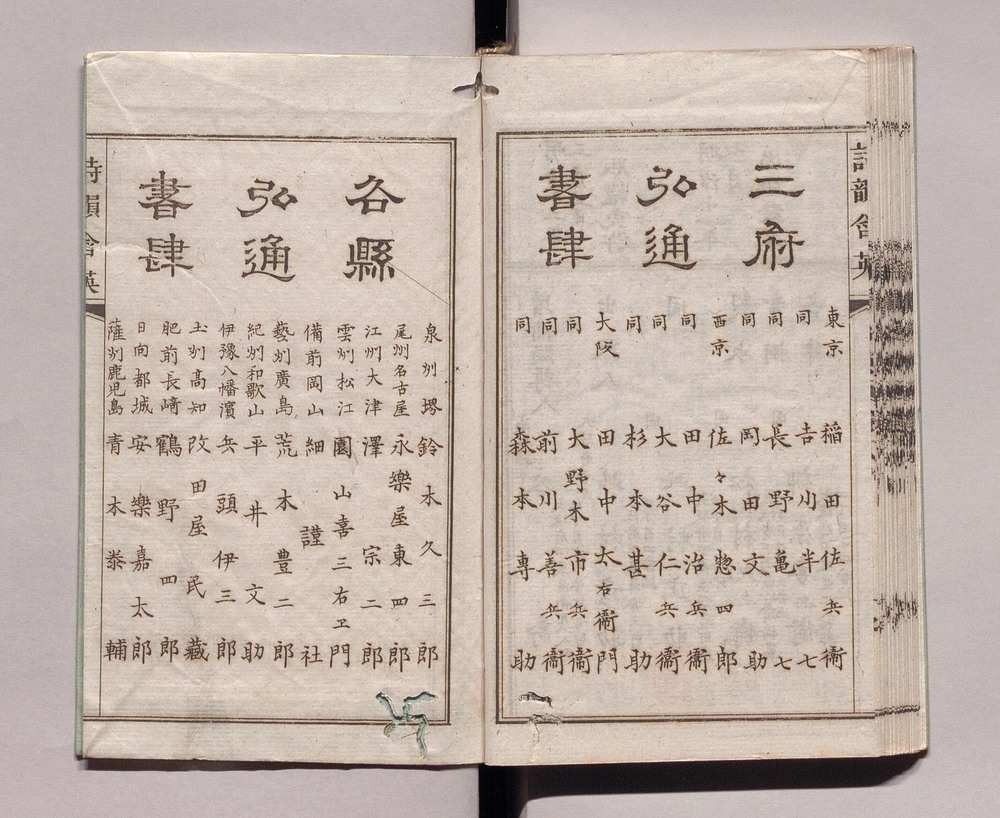 三府
弘通
書肆
東京 稲田佐兵衞
同 吉川半七
同 長野亀七
同 岡田文助
西京 佐々木惣四郎
同 田中治兵衞
同 大谷仁兵衞
同 杉本甚助
大阪 田中太右衞門
同 大野木市兵衞
同 前川善兵衞
同 森本専助
各縣
弘通
書肆
泉州堺 鈴木久三郎
尾州名古屋 永樂屋東四郎
江州大津 澤宗二郎
雲州松江 園山喜三右ヱ門
備前岡山 細謹社
藝州廣島 荒木豊二郎
紀州和歌山 平井文助
伊豫八幡濱 兵頭伊三郎
土州高知 改田屋民藏
肥前長崎 鶴野四郎
日向都城 安樂嘉太郎
薩州鹿児島 青本泰輔
詩韻會英